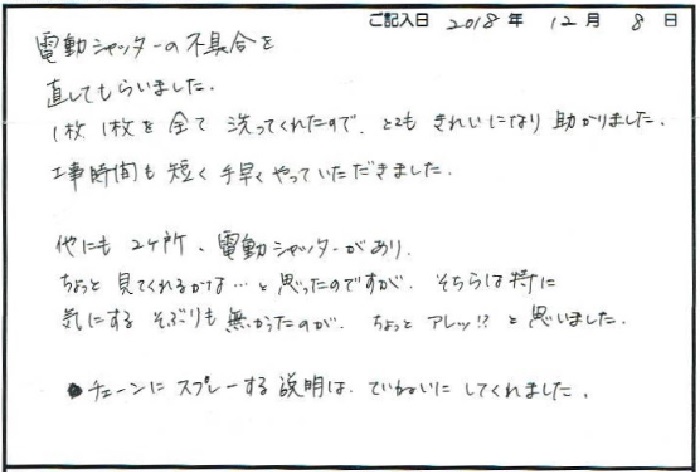 ご記入日 2018 年 12 月 8 日
電動シャッターの不具合を
直してもらいました.
1枚1枚を全て洗ってくれたので、とてもきれいになり助かりました.
工事時間も短く手早くやっていただきました.
他にも2ヶ所、電動シャッターがあり、
ちょっと見てくれるかな…と思ったのですが、そちらは特に
気にするそぶりも無かったのが、ちょっとアレッ!?と思いました.
チェーンにスプレーする説明は、ていねいにしてくれました.